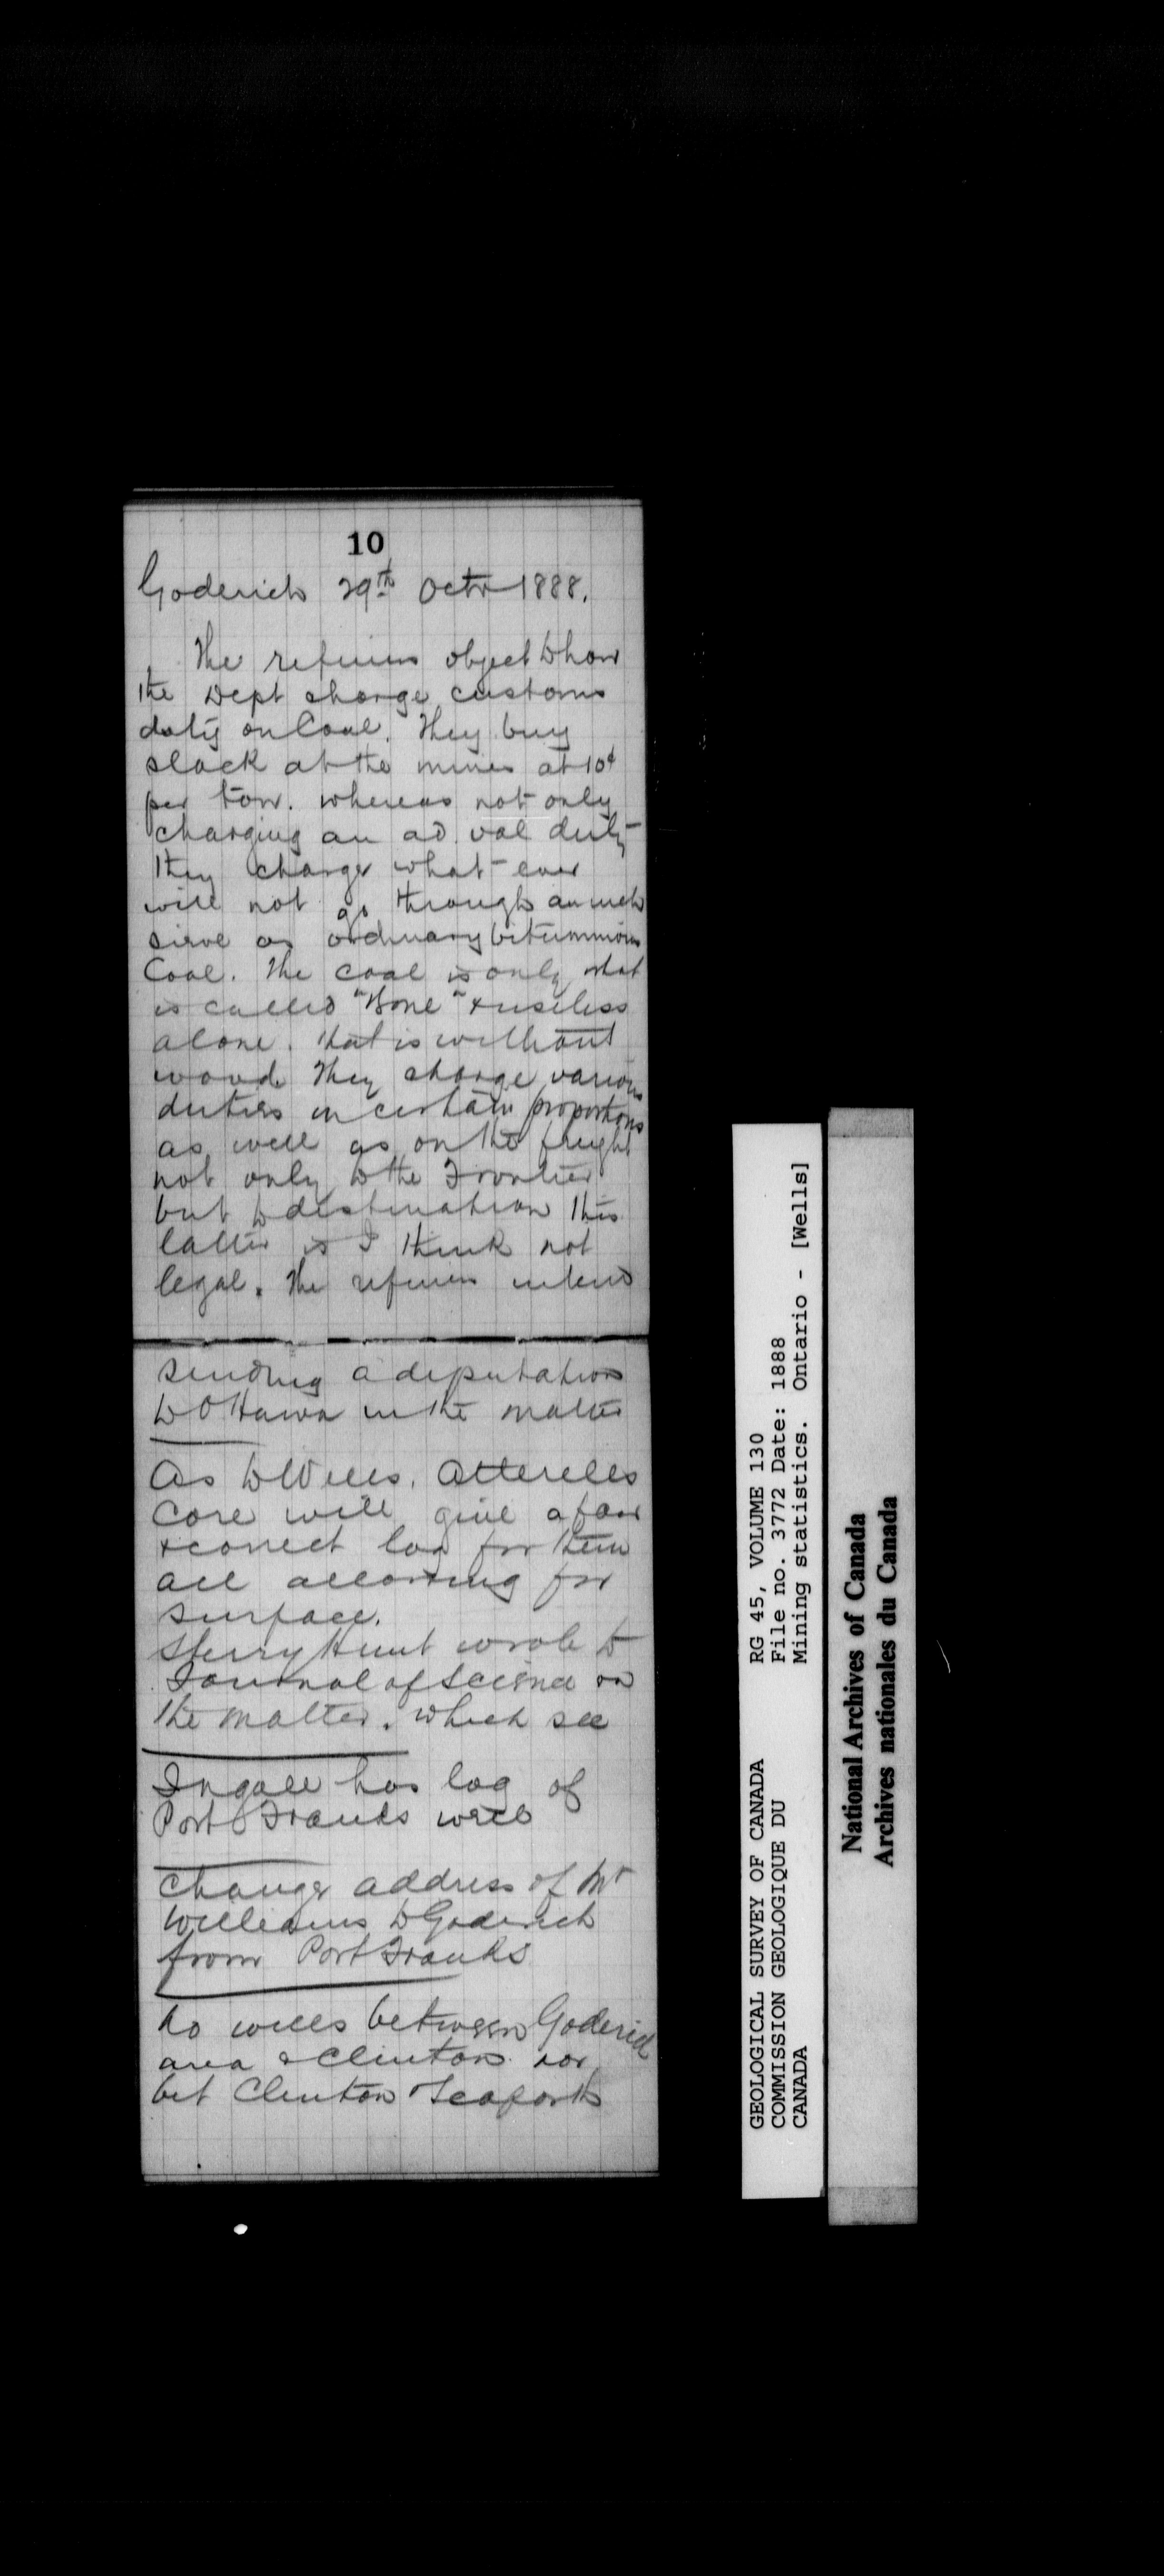 10
Goderich 29th Octr 1888.
The refiners object to how
the Dept charge customs
duty on Coal. They buy
slack at the mines at 10¢
per ton. whereas not only
charging an ad. val duty
they charge what ever
will not go through an inch
sieve as ordinary bituminous
Coal. The coal is only what
is called "Bone" & useless
alone. that is without
wood They charge various
duties in certain proportions
as well as on the freight
not only to the Frontier
but to destination this
latter is I think not
legal. The refiners intend
sending a deputation
to Ottawa in the matter
As to Wells. Attrills
Core will give a fair
& correct log for them
all allowing for
surface.
Sterry Hunt wrote to
Journal of Science on
the matter. which see
Ingall has log of
Port Franks well
Change address of Mr
Williams to Goderich
from Port Franks
No wells between Goderich
area & Clinton nor
bet Clinton & Seaforth
GEOLOGICAL SURVEY OF CANADA
COMMISSION GEOLOGIQUE DU
CANADA
RG 45, VOLUME 130
File no. 3772 Date: 1888
Mining statistics. Ontario - [Wells]
National Archives of Canada
Archives nationales du Canada